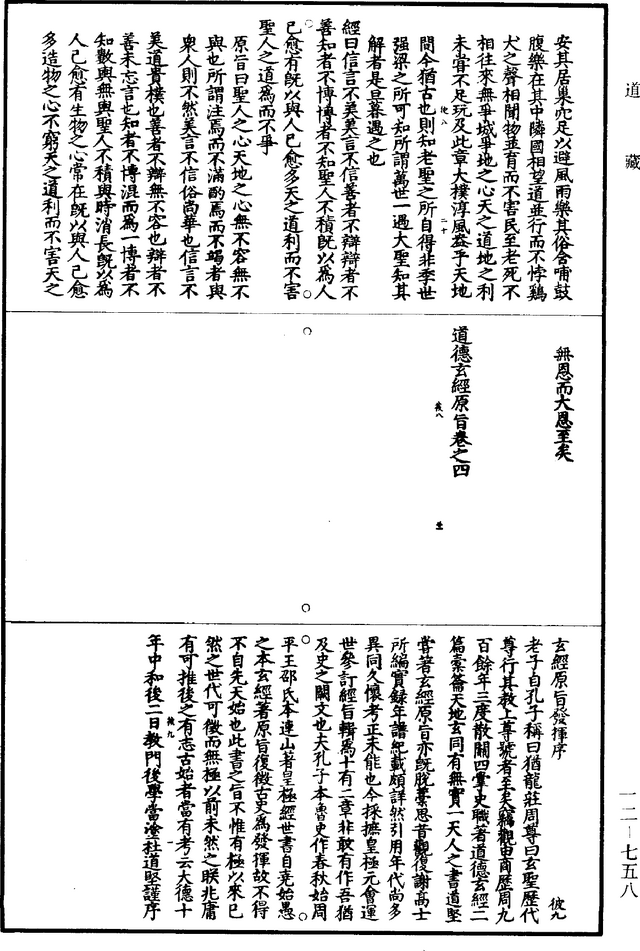 道藏
安其居巢穴足以避風雨樂其俗含哺鼓
腹樂在其中隣國相望道並行而不悖鷄
犬之聲相聞物並育而不害民至老死不
相往來無爭城爭地之心天之道地之利
未甞不足玩及此章大樸淳風盎乎天地
彼八
二十
問今猶古也則知老聖之所自得非季世
强梁之所可知所謂萬世一遇大聖知其
解者是旦暮遇之也
經曰信言不美美言不信善者不辯辯者不
善知者不博博者不知聖人不積旣以爲人
己愈有旣以與人己愈多天之道利而不害
聖人之道爲而不爭
原旨曰聖人之心天地之心無不容無不
與也所謂注焉而不滿酌焉而不竭者與
衆人則不然美言不信俗尚華也信言不
美道貴樸也善者不辯無不容也辯者不
善未忘言也知者不博混而爲一博者不
知數與無與聖人不積與時消長旣以爲
人己愈有生物之心常在旣以與人己愈
多造物之心不窮天之道利而不害天之
無恩而大恩至矣
道德玄經原旨卷之四
彼八
玄經原旨發揮序
彼九
老子自孔子稱曰猶龍莊周尊曰玄聖歷代
尊行其教上尊號者至矣竊觀由商歷周九
百餘年三度散關四掌史職著道德玄經二
篇橐籥天地玄同有無實一天人之書道堅
甞著玄經原旨亦旣脫藁思昔觀復謝高士
所編實録年譜紀載頗詳然引用年代尚多
異同久懷考正未能也今採摭皇極元會運
世參訂經旨輯爲十有二章非敢有作吾猶
及史之闕文也夫孔子本魯史作春秋始周
平王邵氏本連山著皇極經世書自堯始愚
之本玄經著原旨復徵古史爲發揮故不得
不自先天始也此書之旨不惟有極以來已
然之世代可徵而無極以前未然之眹兆庸
有可推後之有志古始者當有考云大德十
彼九
一
年中和後二日教門後學當塗杜道堅謹序
一二─七五八